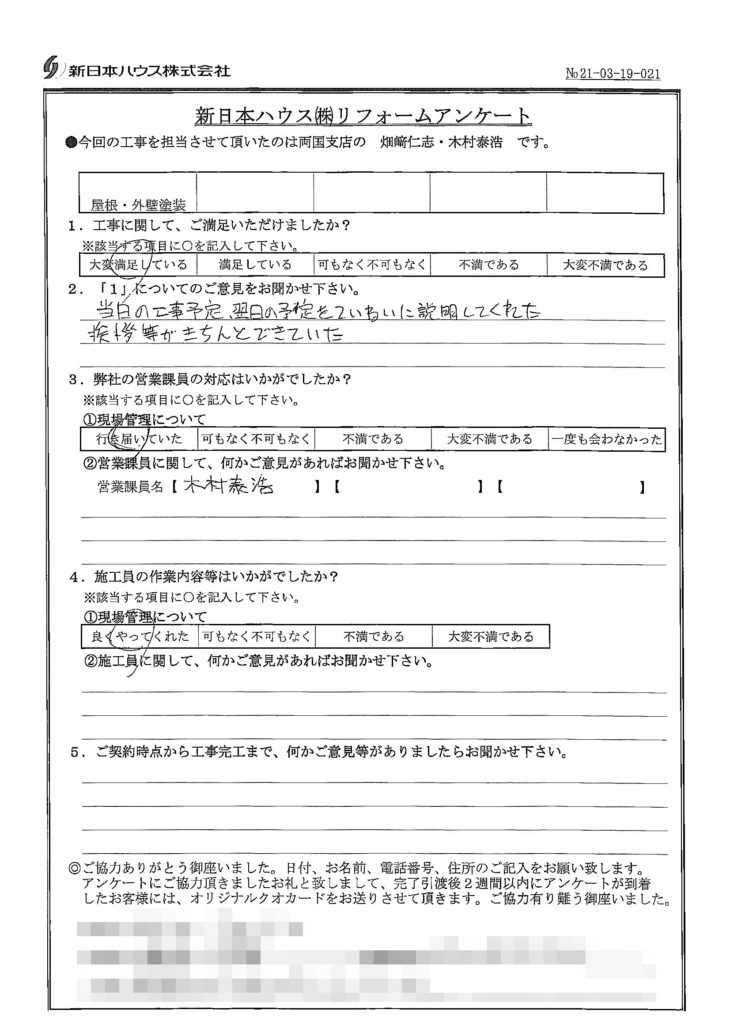 新日本ハウス株式会社
№21-03-19-021
新日本ハウス㈱リフォームアンケート
●今回の工事を担当させて頂いたのは両国支店の 畑﨑仁志・木村泰浩 です。
屋根・外壁塗装
1．工事に関して、ご満足いただけましたか？
※該当する項目に○を記入して下さい。
大変満足している 満足している 可もなく不可もなく 不満である 大変不満である
2．「1」についてのご意見をお聞かせ下さい。
当日の工事予定、翌日の予定をていねいに説明してくれた
挨拶等がきちんとできていた
3．弊社の営業課員の対応はいかがでしたか？
※該当する項目に○を記入して下さい。
①現場管理について
行き届いていた 可もなく不可もなく 不満である 大変不満である 一度も会わなかった
②営業課員に関して、何かご意見があればお聞かせ下さい。
営業課員名【 木村泰浩 】【 】【 】
4．施工員の作業内容等はいかがでしたか？
※該当する項目に○を記入して下さい。
①現場管理について
良くやってくれた 可もなく不可もなく 不満である 大変不満である
②施工員に関して、何かご意見があればお聞かせ下さい。
5．ご契約時点から工事完工まで、何かご意見等がありましたらお聞かせ下さい。
◎ご協力ありがとう御座いました。日付、お名前、電話番号、住所のご記入をお願い致します。
アンケートにご協力頂きましたお礼と致しまして、完了引渡後２週間以内にアンケートが到着
したお客様には、オリジナルクオカードをお送りさせて頂きます。ご協力有り難う御座いました。